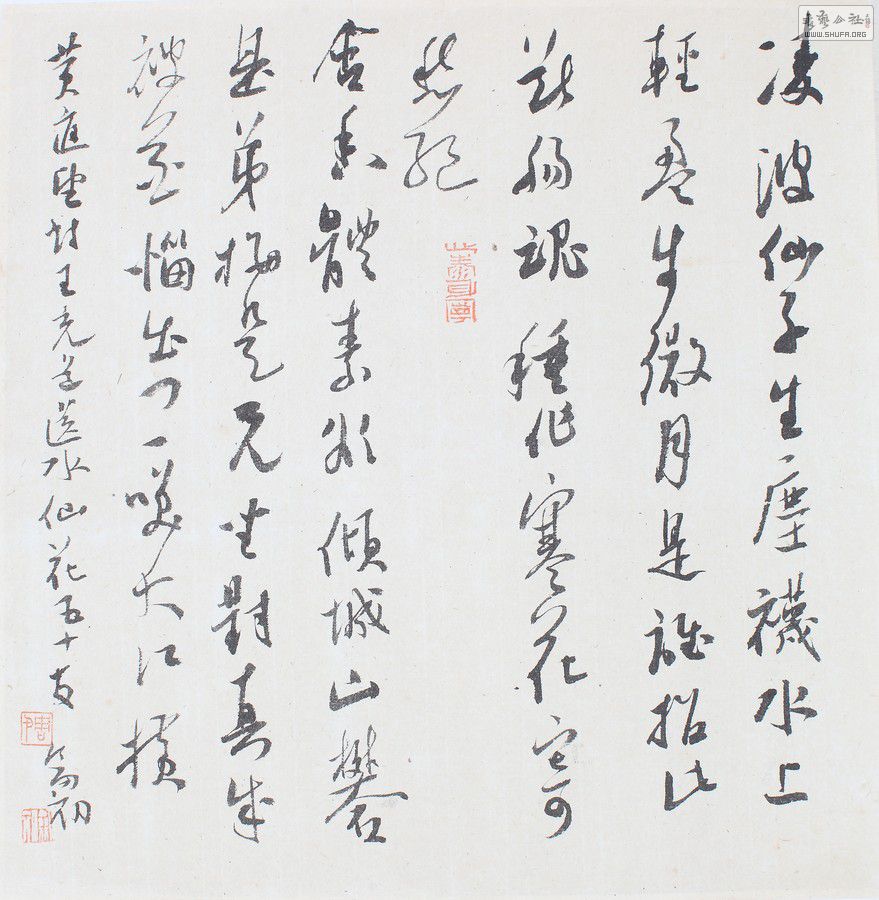 凌波仙子生塵襪水上
輕盈步微月是誰招此
斷腸魂種作寒花寄
愁絕
含香體素欲傾城山礬
是弟梅是兄坐對真成
被花惱出門一笑大江橫
黃庭堅詩王充道送水仙花五十支
書藝公社
WWW.SHUFA.ORG